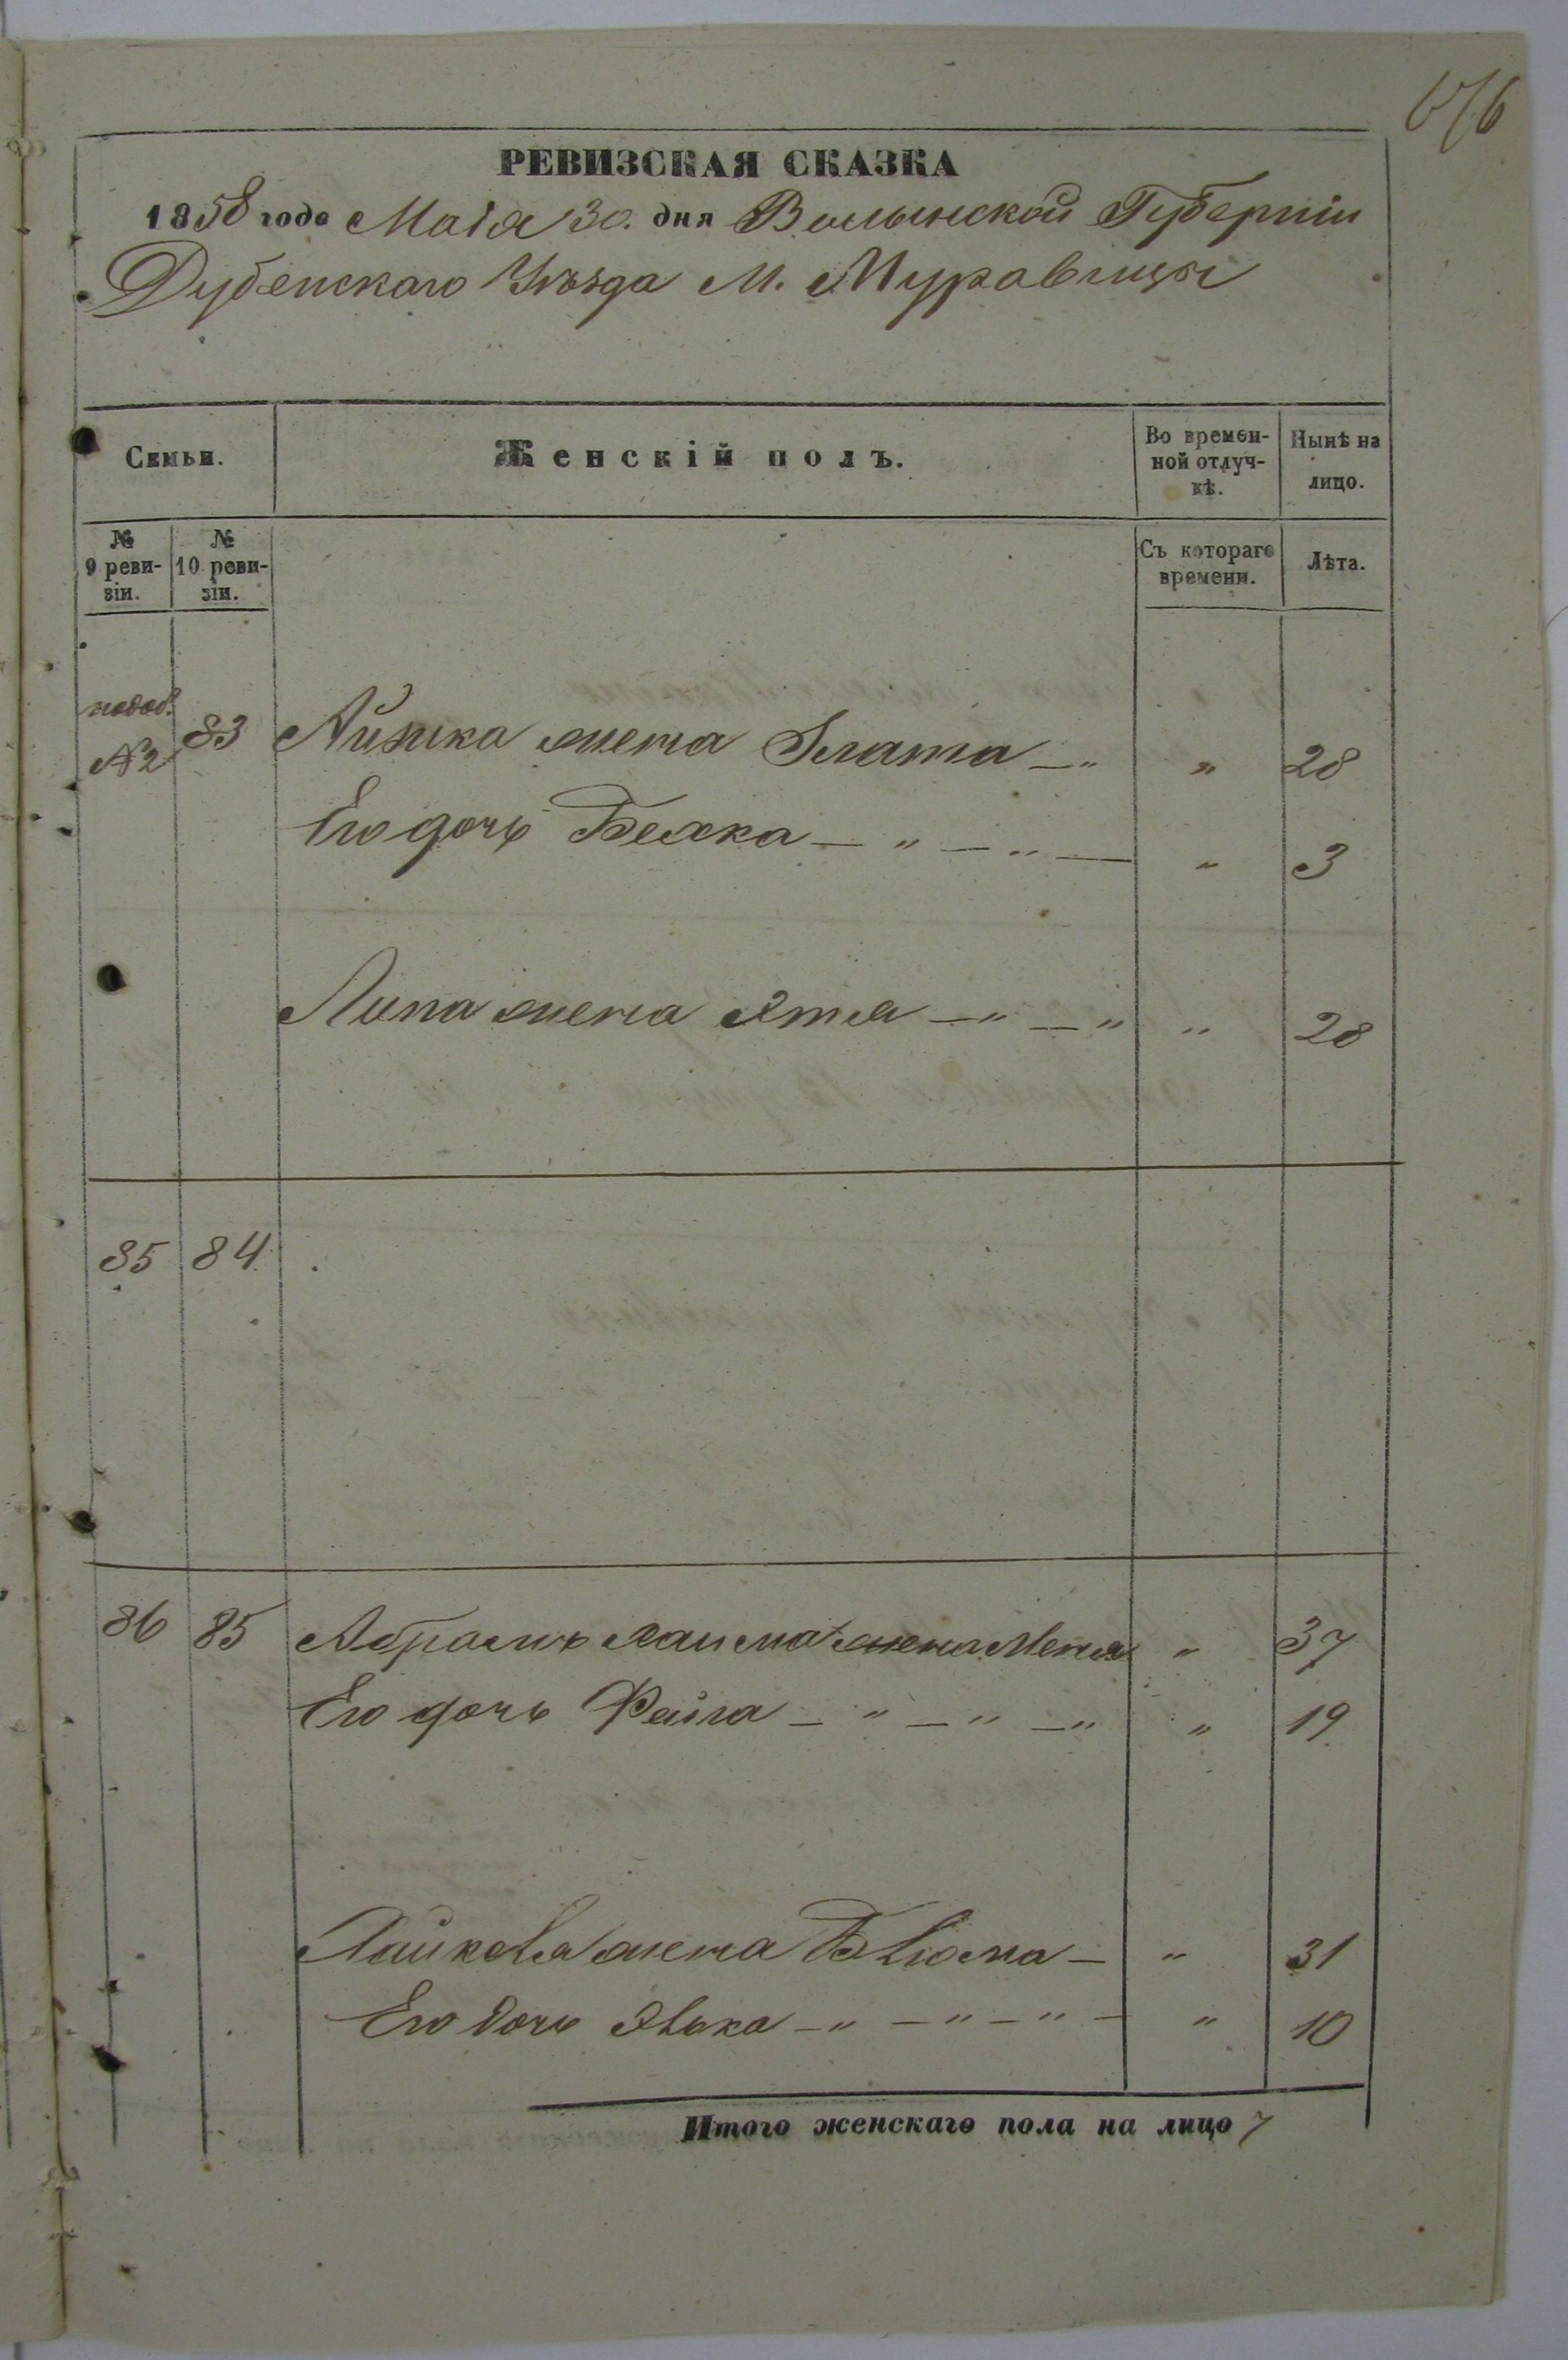 676
РЕВИЗСКАЯ СКАЗКА
1858 года Маія 30. дня Волынской Губерніи
Дубенскаго Уѣзда М. Муравицы
Семьи.
Женскій полъ.
Во времен-
ной отлуч-
кѣ.
Нынѣ на
лицо.
№
9 реви-
зіи.
№
10 реви-
зіи.
Съ котораго
времени.
Лѣта.
№2 83 жена Злата — " " 28
Его дочь Бейка — " — " — " 3
Липа жена Этя — " — " " 28
85 84
86 85 Абрамъ Хаима жена Меня " 37
Его дочь Фейга — " — " — " " 19
жена Блюма — " 31
Его дочь — " — " — " — " 10
Итого женскаго пола на лицо 7